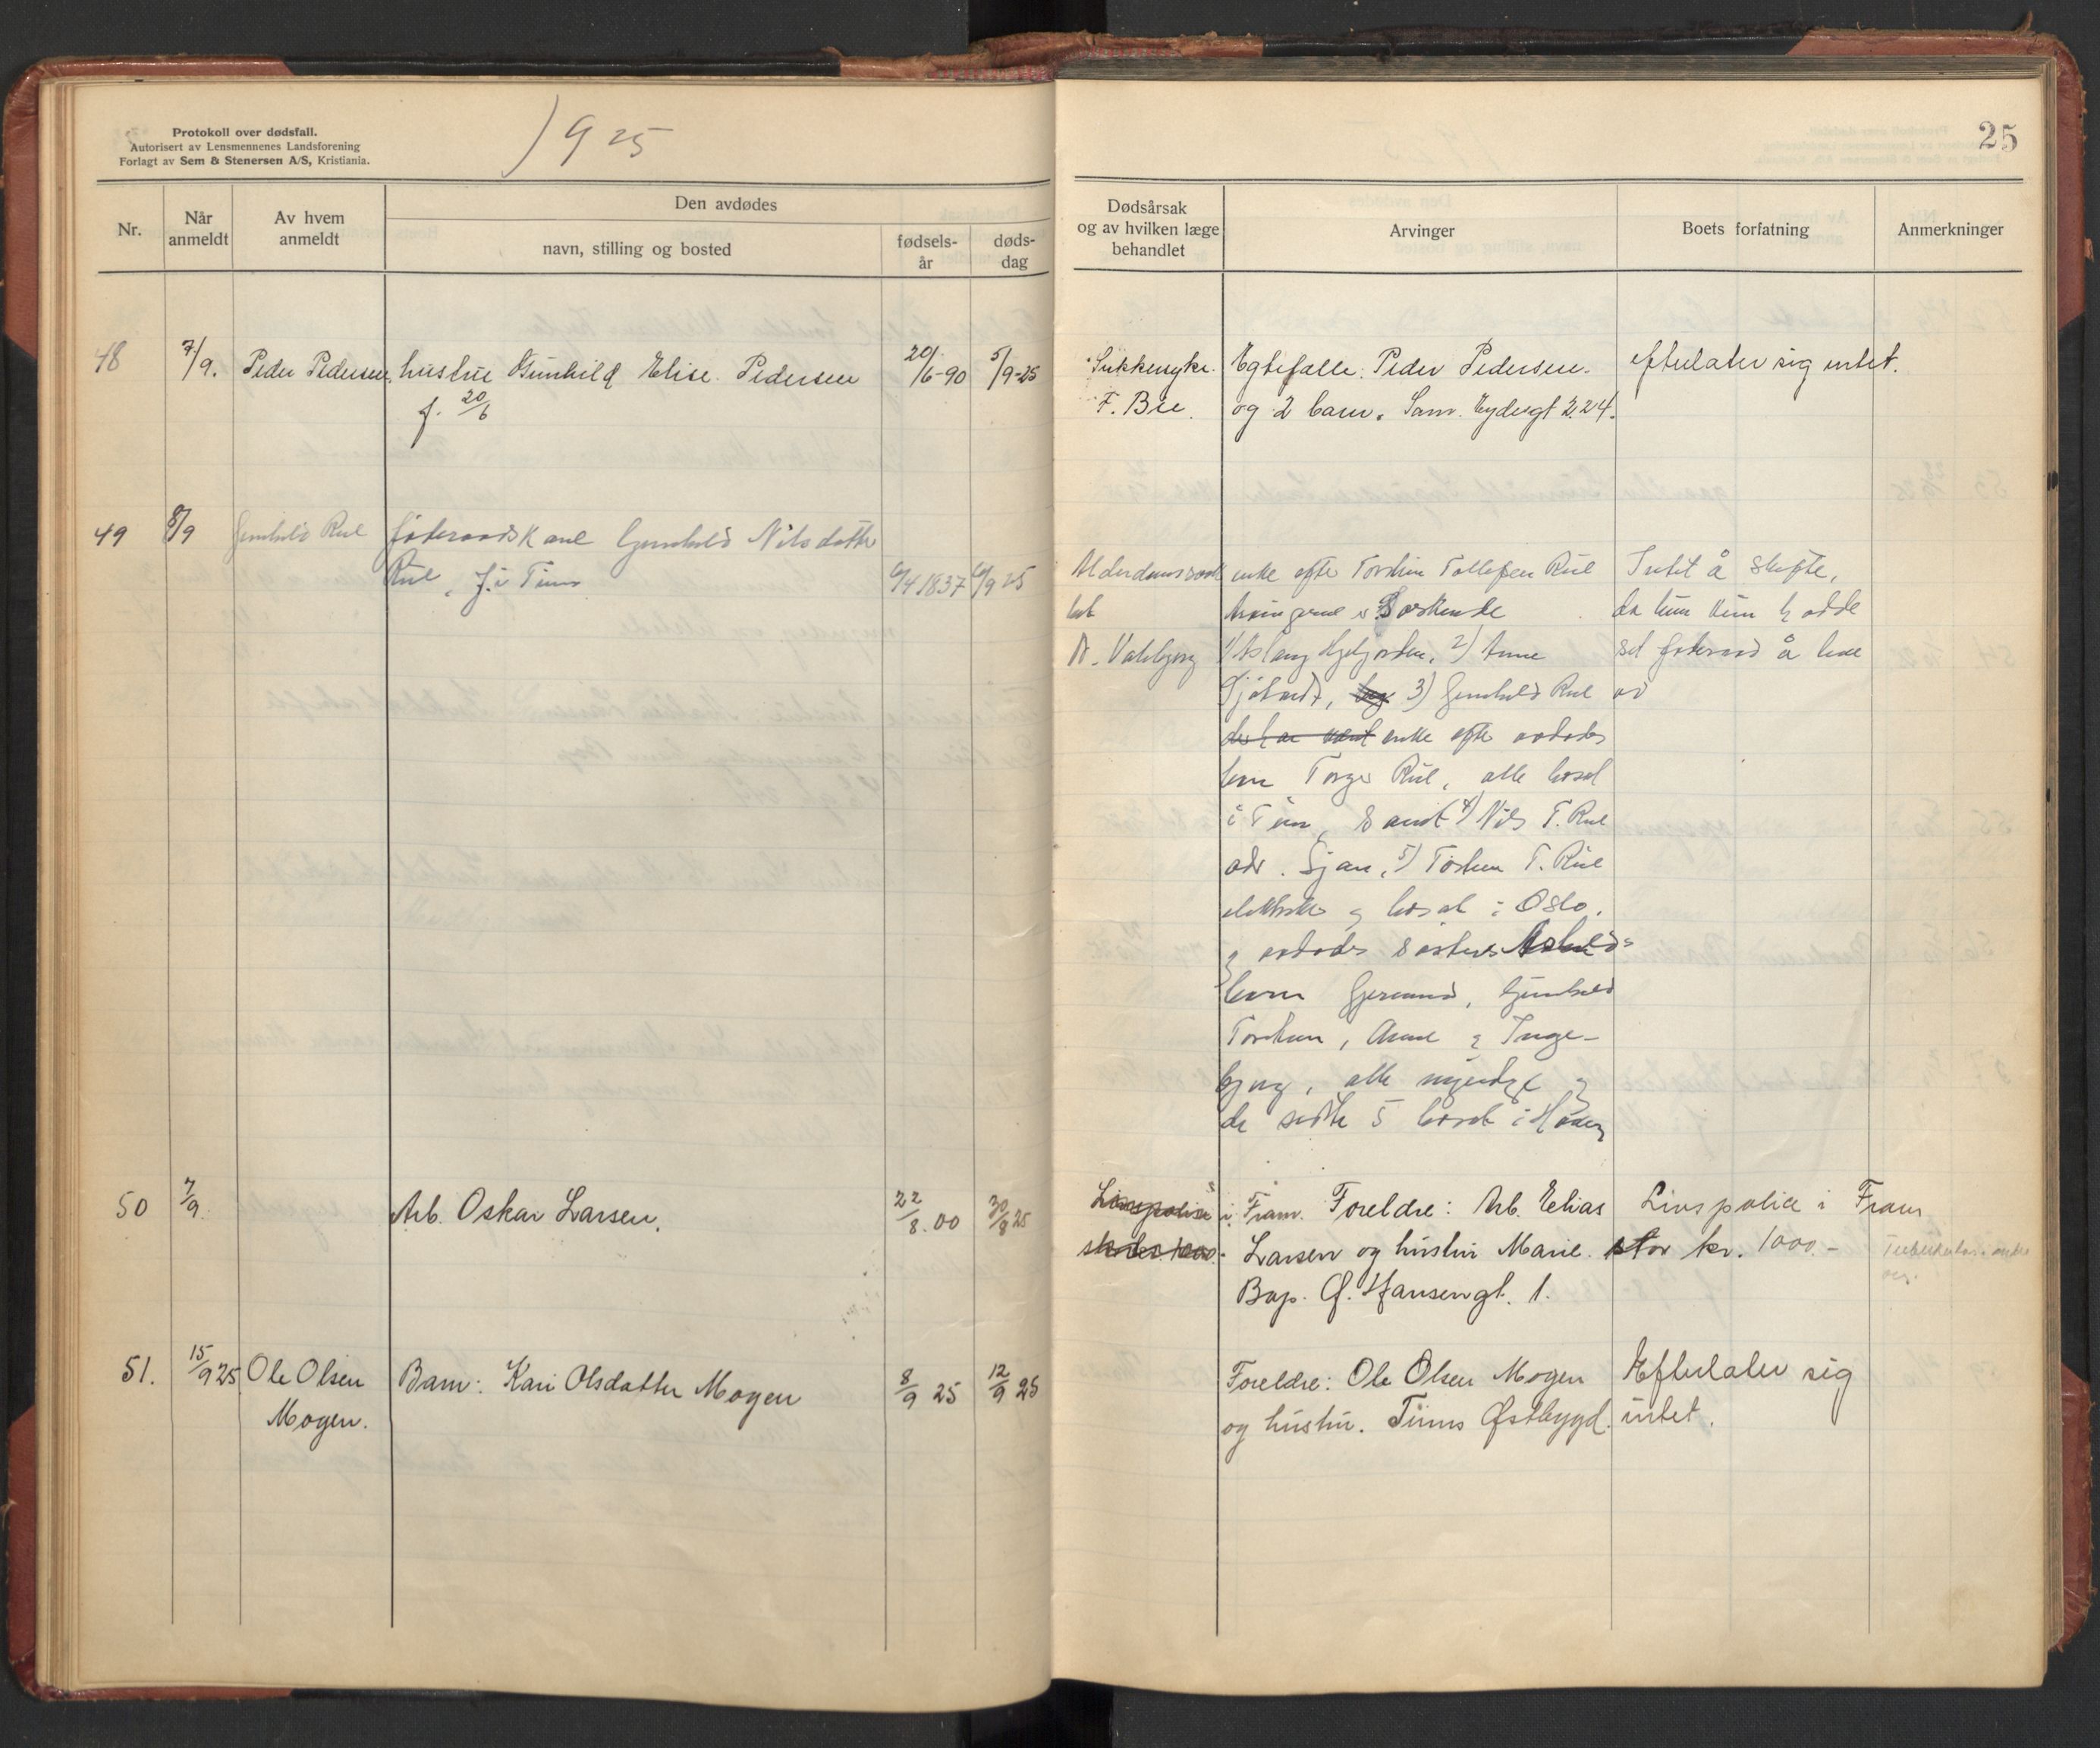 Protokoll over dødsfall.
Autorisert av Lensmennenes Landsforening
Forlagt av Sem & Stenersen A/S, Kristiania.
1925
25
Nr.
Når anmeldt
Av hvem anmeldt
Den avdødes
navn, stilling og bosted
fødsels-år
døds-dag
Dødsårsak og av hvilken læge behandlet
Arvinger
Boets forfatning
Anmerkninger
48 7/9. Peder Pedersen. hustru Gunhild Elise Pedersen 20/6-90 5/9-25 Sukkersyke. Egtefælle: Peder Pedersen. efterlater sig intet.
f. 20/6 F. Bie. og 2 barn. Sam. Eydesgt 224.
49 8/9 Gunhild Rue føderaadskane Gunhild Nilsdatter
Rue, f. i Tinn 6/4 1837 6/9 25 enke efter Torstein Tollefsen Rue Intet å skifte,
Arvingerne er Søskende da hun kun hadde
Dr. 1) Aslaug 2) Anne sit føderaad å leve
3) Gunhild Rue av
des har været enke efter avdødes
Torge Rue, alle bosat
i Tinn, samt 4) Nils T. Rue
adr. 5) Torstein T. Rue
og bosat i Oslo.
og avdødes søsters
barn Gjermund, Gunhild
Torstein, Anne & Inge-
bjørg, alle myndige og
de sidste 5 bosat i
50 7/9. Arb. Oskar Larsen. 22/8.00 30/8 25 Livspolise i Fram. Foreldre: Arb. Elias Livspolice i Fram
1000.- Larsen og hustru Marie. stor kr. 1000.-
Bop. O. Hansengt. 1.
51. 15/9 25 Ole Olsen Barn: Kari Olsdatter Mogen 8/9 25 12/9 25 Foreldre: Ole Olsen Mogen Efterlater sig
Mogen. og hustru. Tinns Østbygd. intet.